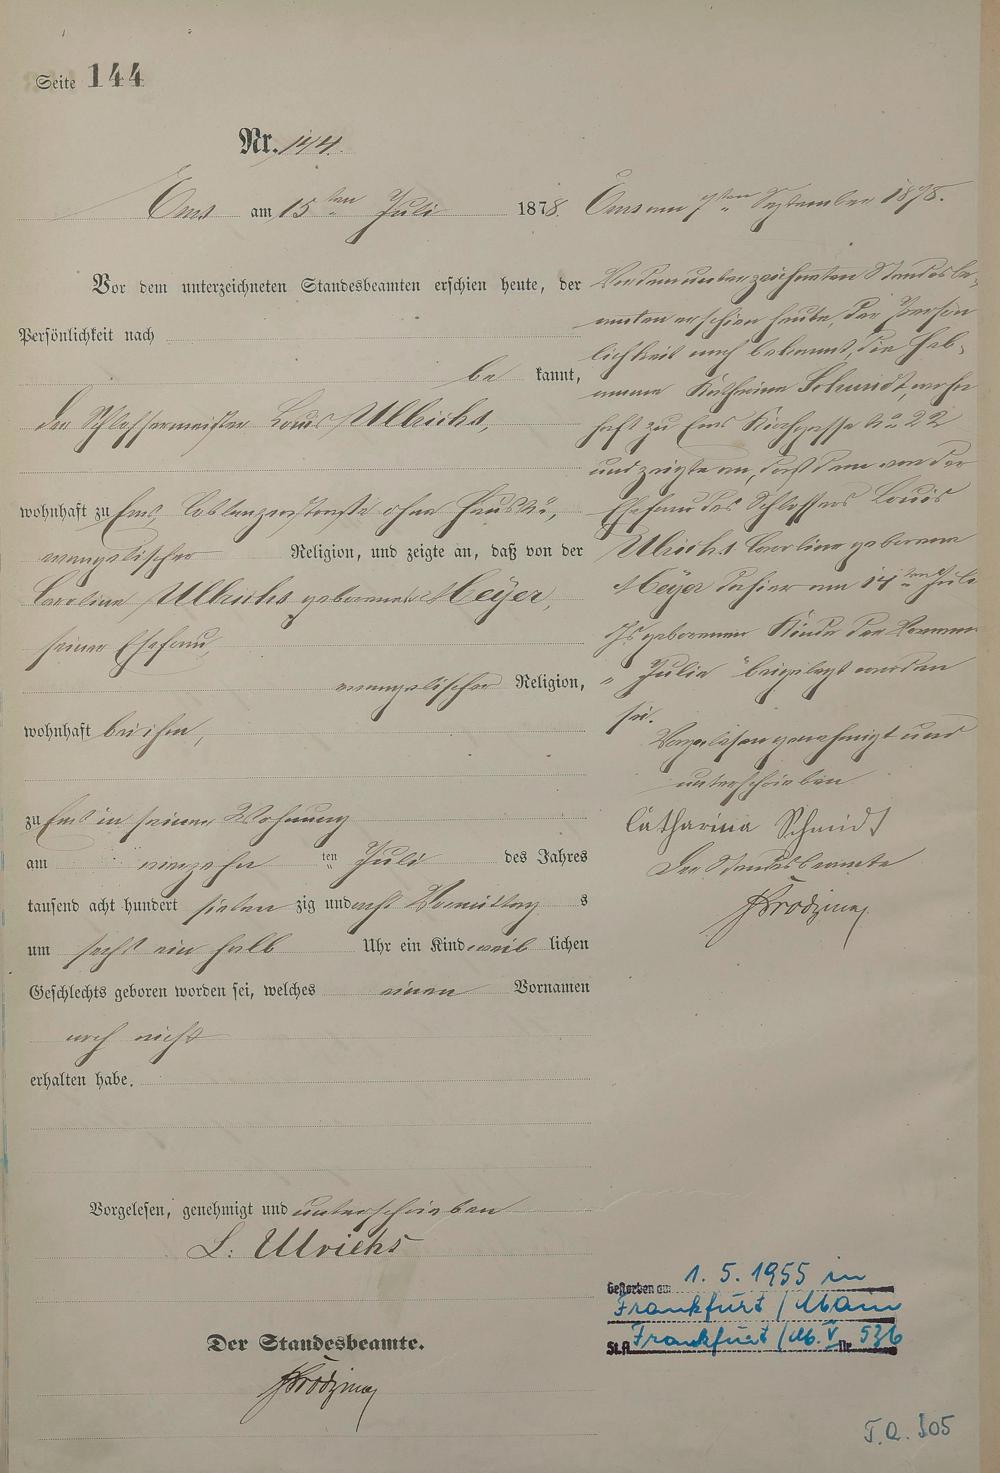 Seite 144
Nr. 144.
Ems am 15ten Juli 1878.
Vor dem unterzeichneten Standesbeamten erschien heute, der
Persönlichkeit nach
be kannt,
der Schlossermeister Louis Ullrichs,
wohnhaft zu Ems, Coblenzerstraße ohne Haus No,
evangelischer Religion, und zeigte an, daß von der
Caroline Ullrichs geborenen Meÿer,
seiner Ehefrau,
evangelischer Religion,
wohnhaft bei ihm,
zu Ems in seiner Wohnung
am vierzehn ten Juli des Jahres
tausend acht hundert sieben zig und acht Vormittag s
um sechs ein halb Uhr ein Kind weib lichen
Geschlechts geboren worden sei, welches einen Vornamen
noch nicht
erhalten habe.
Vorgelesen, genehmigt und unterschrieben
L. Ulrichs
Der Standesbeamte.
Ems am 7ten September 1878.
Vor dem unterzeichneten Standesbe-
amten erschien heute, der Person
lichkeit nach bekannt, die Heb-
amme Katharina Schmidt, wohn
haft zu Ems Kirchgasse No 22
und zeigte an, daß dem von der
Ehefrau des Schlossers Louis
Ulrichs Caroline geborene
Meÿer dahier am 14ten Juli
Js geborenen Kinde der Vorname
„Julie" beigelegt worden
sei.
Vorgelesen genehmigt und
unterschrieben
Catharina Schmidt
Der Standesbeamte
Gestorben am 1. 5. 1955 in
Frankfurt / Main
St.A. Frankfurt / M. V Nr. 536
T.A. 305